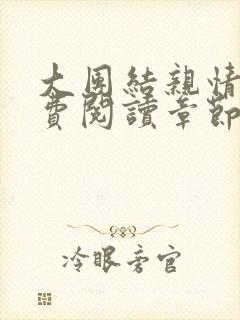 大團結親情
費閱讀章節
冷眼旁官